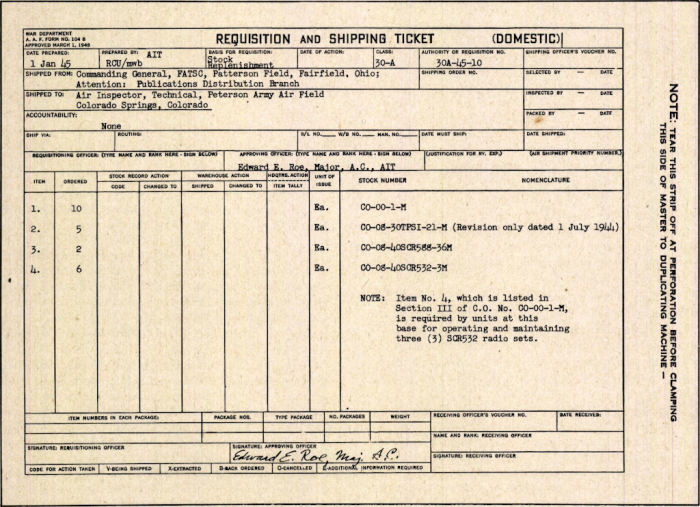 WAR DEPARTMENT
A. A. F. FORM NO. 104 B
APPROVED MARCH 1, 1943
REQUISITION AND SHIPPING TICKET (DOMESTIC)
DATE PREPARED: PREPARED BY: AIT BASIS FOR REQUISITION: DATE OF ACTION: CLASS: AUTHORITY OR REQUISITION NO. SHIPPING OFFICER'S VOUCHER NO.
1 Jan 45 RCU/mwb Stock Replenishment 30-A 30A-45-10
SHIPPED FROM: Commanding General, FATSC, Patterson Field, Fairfield, Ohio; SHIPPING ORDER NO. SELECTED BY — DATE
Attention: Publications Distribution Branch
SHIPPED TO: Air Inspector, Technical, Peterson Army Air Field INSPECTED BY — DATE
Colorado Springs, Colorado
ACCOUNTABILITY: PACKED BY — DATE
None
SHIP VIA: ROUTING: B/L NO. W/B NO. MAN. NO. DATE MUST SHIP: DATE SHIPPED:
REQUISITIONING OFFICER: (TYPE NAME AND RANK HERE - SIGN BELOW) APPROVING OFFICER: (TYPE NAME AND RANK HERE - SIGN BELOW) (JUSTIFICATION FOR RY. EXP.) (AIR SHIPMENT PRIORITY NUMBER)
Edward E. Roe, Major, A.C., AIT
ITEM ORDERED STOCK RECORD ACTION WAREHOUSE ACTION HDQTRS. ACTION UNIT OF ISSUE STOCK NUMBER NOMENCLATURE
CODE CHANGED TO SHIPPED CHANGED TO ITEM TALLY
1. 10 Ea. CO-00-1-M
2. 5 Ea. CO-08-30TPSI-21-M (Revision only dated 1 July 1944)
3. 2 Ea. CO-08-40SCR588-36M
4. 6 Ea. CO-08-40SCR532-3M
NOTE: Item No. 4, which is listed in
Section III of C.O. No. CO-00-1-M,
is required by units at this
base for operating and maintaining
three (3) SCR532 radio sets.
ITEM NUMBERS IN EACH PACKAGE: PACKAGE NOS. TYPE PACKAGE NO. PACKAGES WEIGHT RECEIVING OFFICER'S VOUCHER NO. DATE RECEIVED:
NAME AND RANK: RECEIVING OFFICER
SIGNATURE: REQUISITIONING OFFICER SIGNATURE: APPROVING OFFICER
Edward E. Roe, Maj. A.C. SIGNATURE: RECEIVING OFFICER
CODE FOR ACTION TAKEN V-BEING SHIPPED X-EXTRACTED B-BACK ORDERED O-CANCELLED E-ADDITIONAL INFORMATION REQUIRED
NOTE: TEAR THIS STRIP OFF AT PERFORATION BEFORE CLAMPING
THIS SIDE OF MASTER TO DUPLICATING MACHINE —